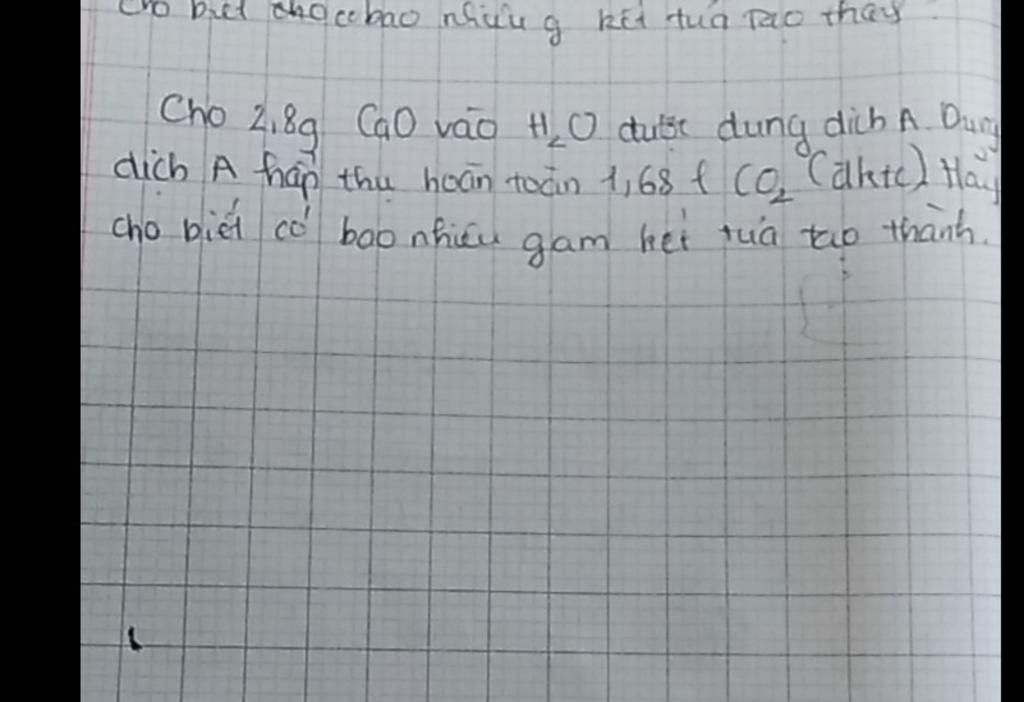 cho biết cho có bao nhiêu g kết tủa tạo thay
Cho 2,8g CaO vào H₂O được dung dịch A. Dung
dịch A hấp thụ hoàn toàn 1,68 l CO₂ (đktc) Hãy
cho biết có bao nhiêu gam kết tủa tạo thành.